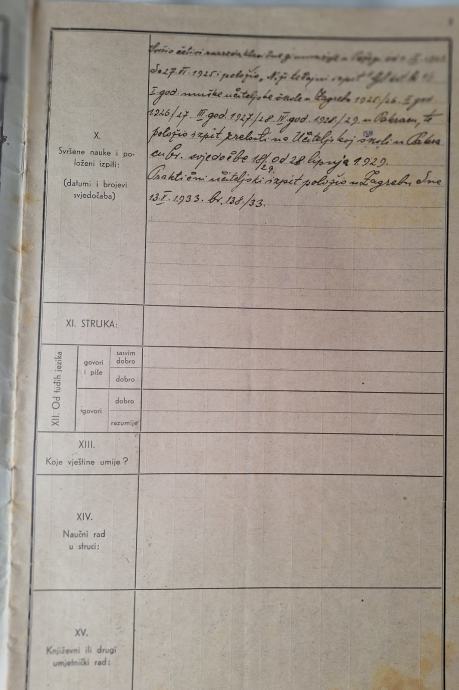 X.
Svršene nauke i po-
loženi izpiti:
(datumi i brojevi
svjedočaba)
Svršio četiri razreda
do 27. VI. 1925 i položio niži tečajni izpit
I god. muške učiteljske škole u Zagrebu 1925/26. II god.
1926/27. III god. 1927/28. IV god. 1928/29. u Pakracu, te
položio izpit zrelosti na Učiteljskoj školi u Pakra-
cu br. svjedočbe 18/29. od 28 lipnja 1929.
Praktični učiteljski izpit položio u Zagrebu dne
13. I. 1933. br. 138/33.
XI. STRUKA:
XII. Od tuđih jezika
govori
i piše
sasvim
dobro
dobro
govori
dobro
razumije
XIII.
Koje vještine umije?
XIV.
Naučni rad
u struci:
XV.
Književni ili drugi
umjetnički rad: